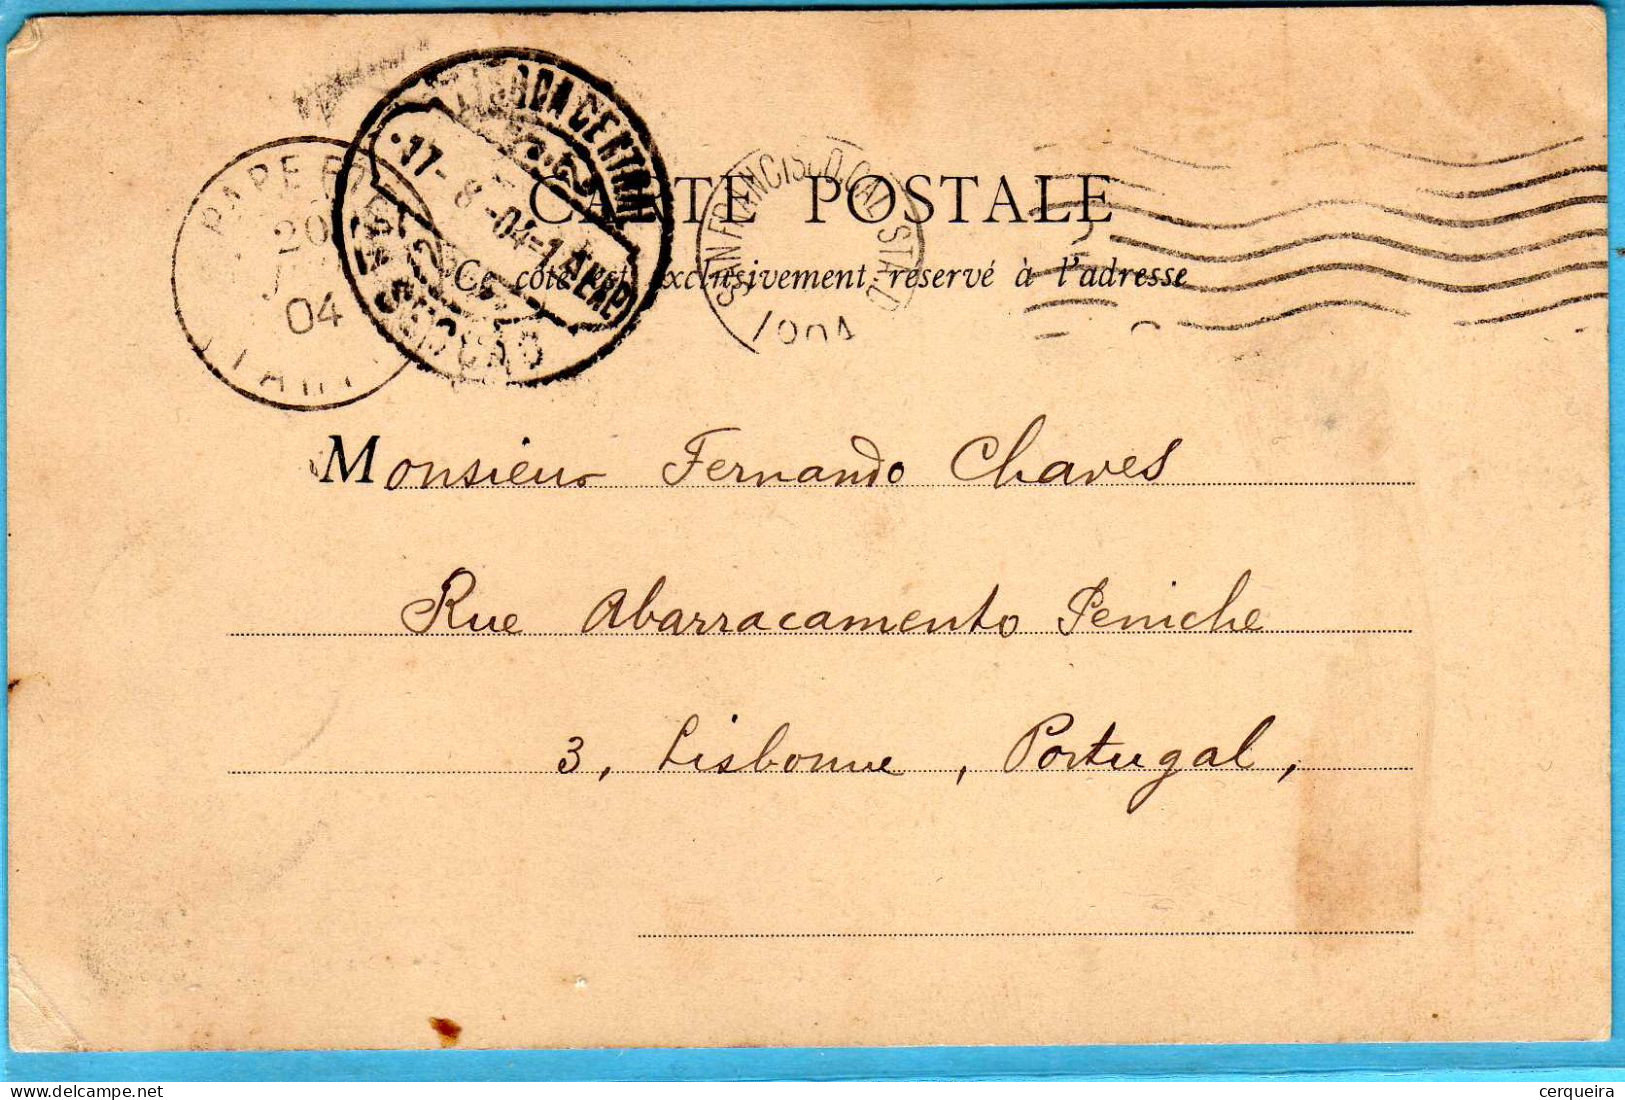 PAPEETE
20
04
TAHITI
LISBOA CENTRAL
17-8-04-1
SAN FRANCISCO, CAL. STA. D
1904
CARTE POSTALE
Ce côté est exclusivement réservé à l'adresse
Monsieur Fernando Chaves
Rue Abarracamento Peniche
3, Lisbonne, Portugal,
cerqueira